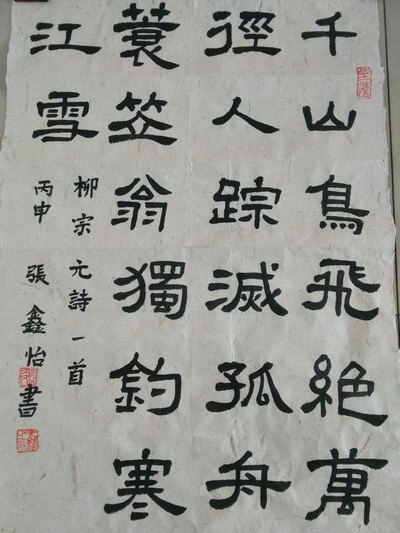 千山鳥飛絕萬
徑人踪滅孤舟
蓑笠翁獨釣寒
江雪
柳宗元詩一首
丙申張鑫怡書